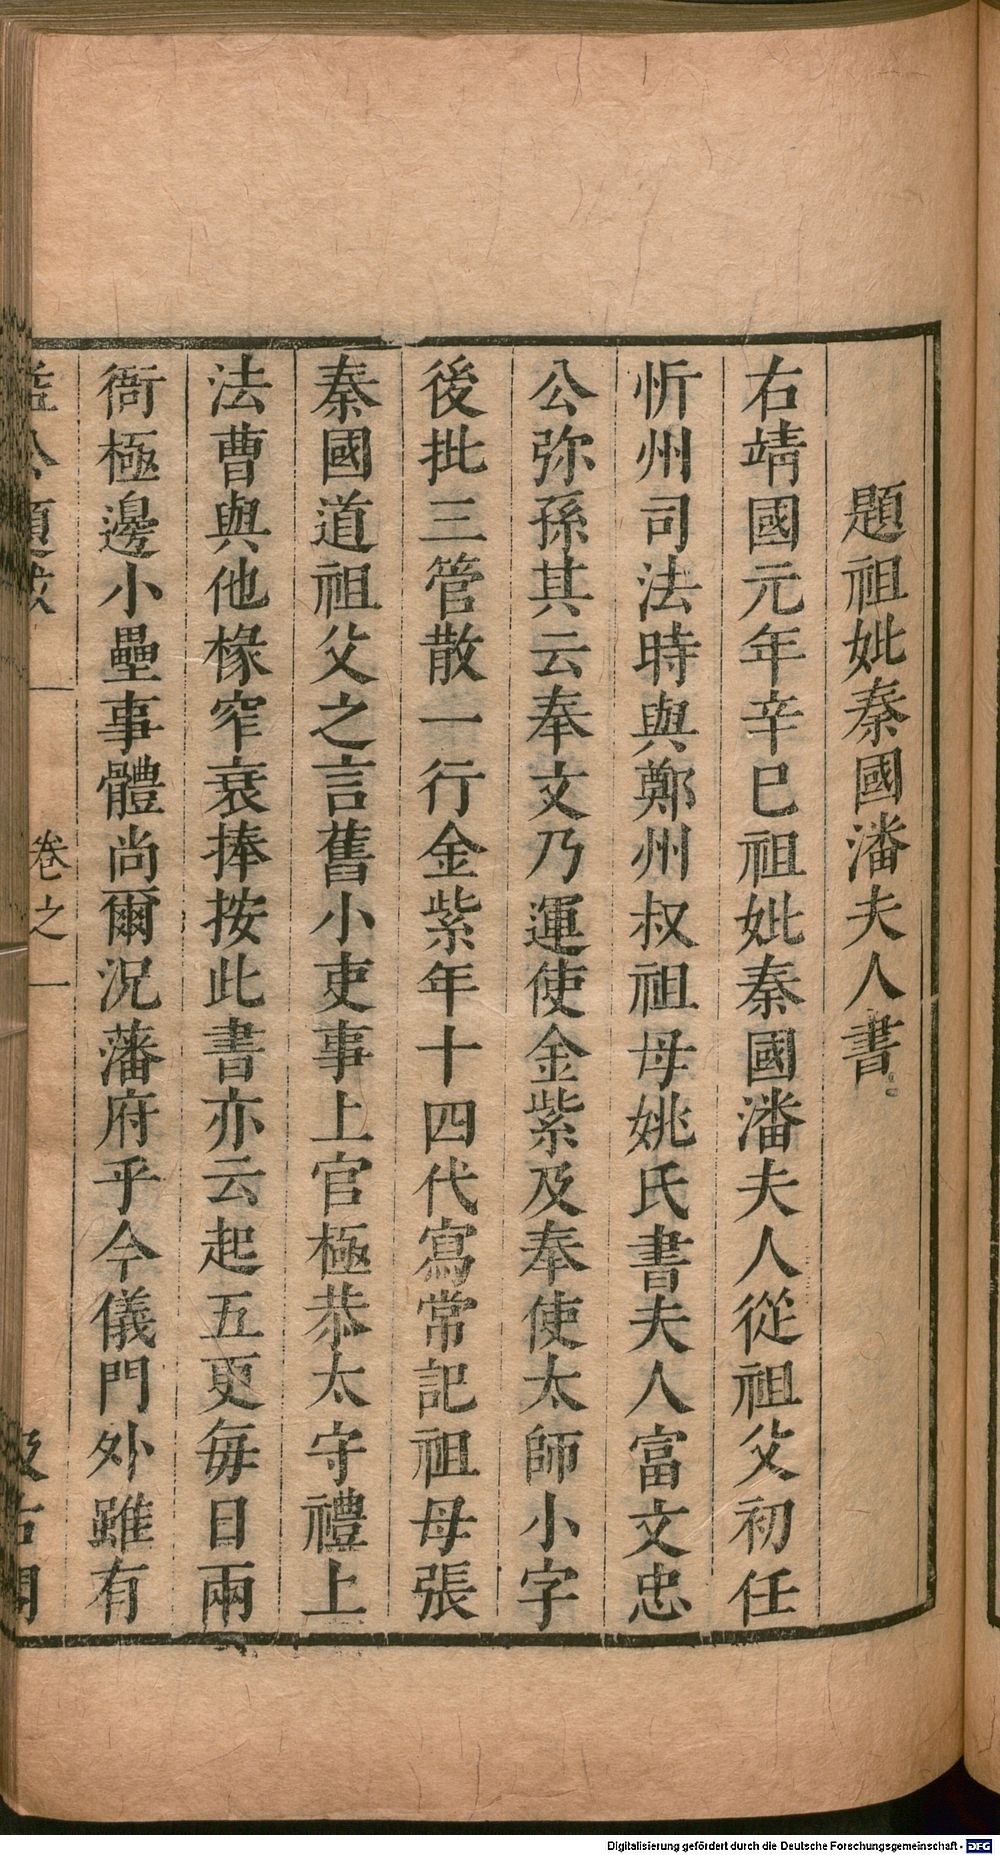 題祖妣秦國潘夫人書
右靖國元年辛巳祖妣秦國潘夫人從祖父初任
忻州司法時與鄭州叔祖母姚氏書夫人富文忠
公弥孫其云奉文乃運使金紫及奉使太師小字
後批三管散一行金紫年十四代寫常記祖母張
秦國道祖父之言舊小吏事上官極恭太守禮上
法曹與他椽窄衰捧按此書亦云起五更每日兩
衙極邊小壘事體尚爾況藩府乎今儀門外雖有
益公題跋
卷之一
汲古閣
Digitalisierung gefördert durch die Deutsche Forschungsgemeinschaft - DFG